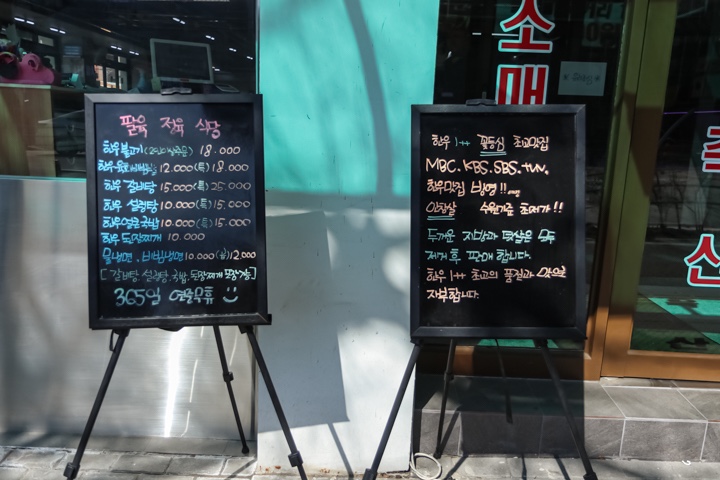 팔육 정육 식당
한우불고기(2인이상주문) 18.000
한우 12.000(특)18.000
한우 갈비탕 15.000(특)25.000
한우 설렁탕 10.000(특)15.000
한우얼큰국밥 10.000(특)15.000
한우 된장찌개 10.000
물냉면. 비빔냉면 10.000 12.000
[갈비탕. 설렁탕. 국밥. 된장찌개 포장가능]
365일 연중무휴
한우 1++ 꽃등심 최고맛집
MBC. KBS. SBS. tvN.
한우맛집 방영!!
안창살 수원기준 최저가!!
두꺼운 지방과 떡살은 모두
제거 후 판매 합니다.
한우 1++ 최고의 품질과 맛을
자부합니다.
소
매
축
산